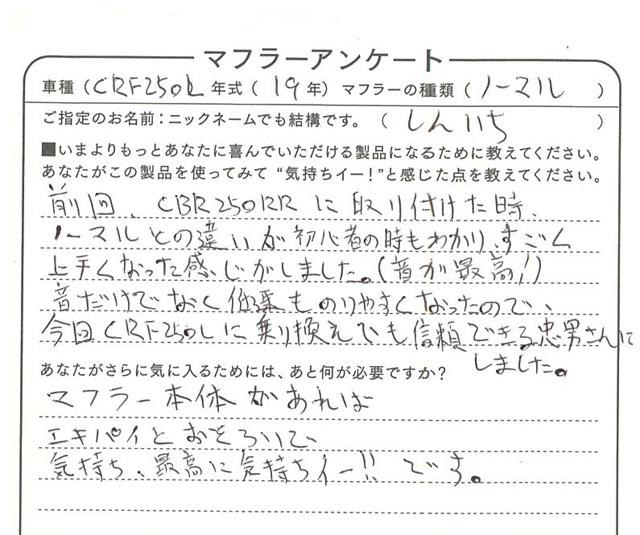 マフラーアンケート
車種（CRF250L 年式（19年）マフラーの種類（ノーマル）
ご指定のお名前：ニックネームでも結構です。（しんいち）
■いまよりもっとあなたに喜んでいただける製品になるために教えてください。
あなたがこの製品を使ってみて“気持ちイー！”と感じた点を教えてください。
前回、CBR250RRに取り付けた時、
ノーマルとの違いが初心者の時もわかり、すごく
上手くなった感じがしました。（音が最高！）
音だけでなく低速ものりやすくなったので、
今回CRF250Lに乗り換えでも信頼できる忠男さんに
しました。
あなたがさらに気に入るためには、あと何が必要ですか？
マフラー本体があれば
エキパイとおそろいで、
気持ち、最高に気持ちイー!!です。